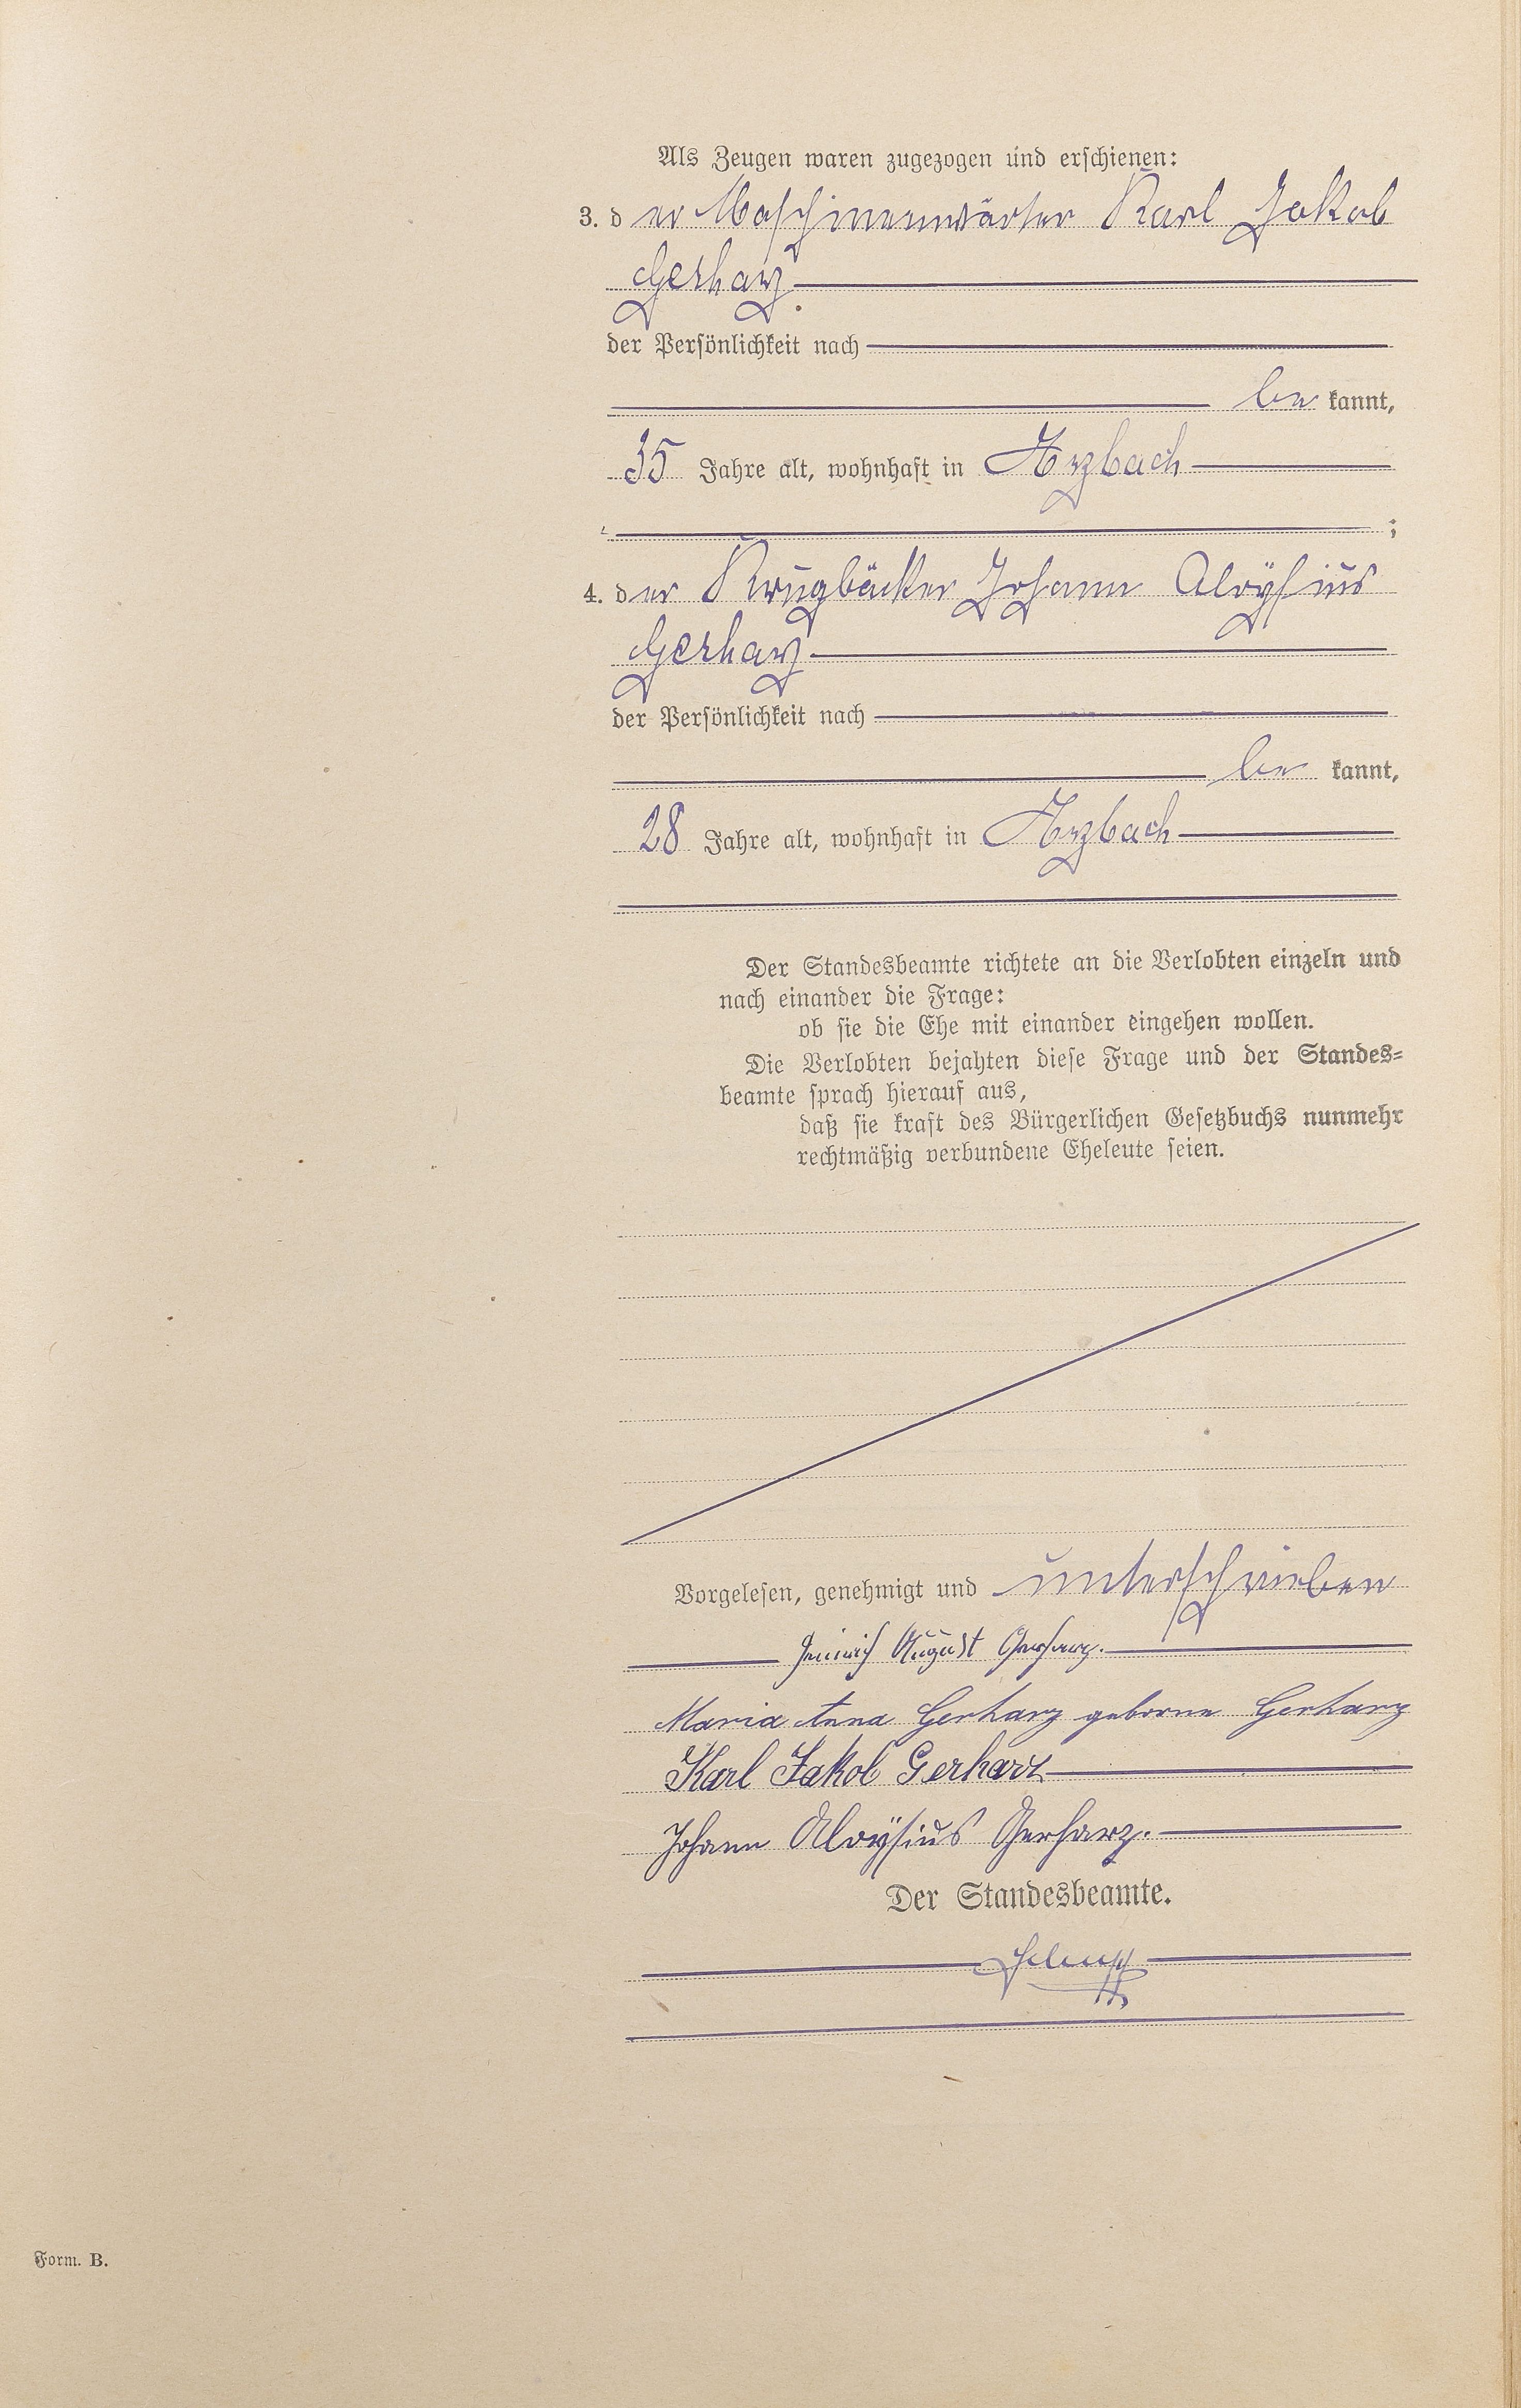 Als Zeugen waren zugezogen und erschienen:
3. der Maschinenwärter Karl Jakob
Gerharz
der Persönlichkeit nach
be kannt,
35 Jahre alt, wohnhaft in Arzbach
;
4. der Krugbäcker Johann Aloÿsius
Gerharz
der Persönlichkeit nach
be kannt,
28 Jahre alt, wohnhaft in Arzbach
Der Standesbeamte richtete an die Verlobten einzeln und
nach einander die Frage:
ob sie die Ehe mit einander eingehen wollen.
Die Verlobten bejahten diese Frage und der Standes=
beamte sprach hierauf aus,
daß sie kraft des Bürgerlichen Gesetzbuchs nunmehr
rechtmäßig verbundene Eheleute seien.
Vorgelesen, genehmigt und unterschrieben
Heinrich August Gerharz.
Maria Anna Gerharz geborne Gerharz
Karl Jakob Gerharz
Johann Aloÿsius Gerharz.
Der Standesbeamte.
Form. B.